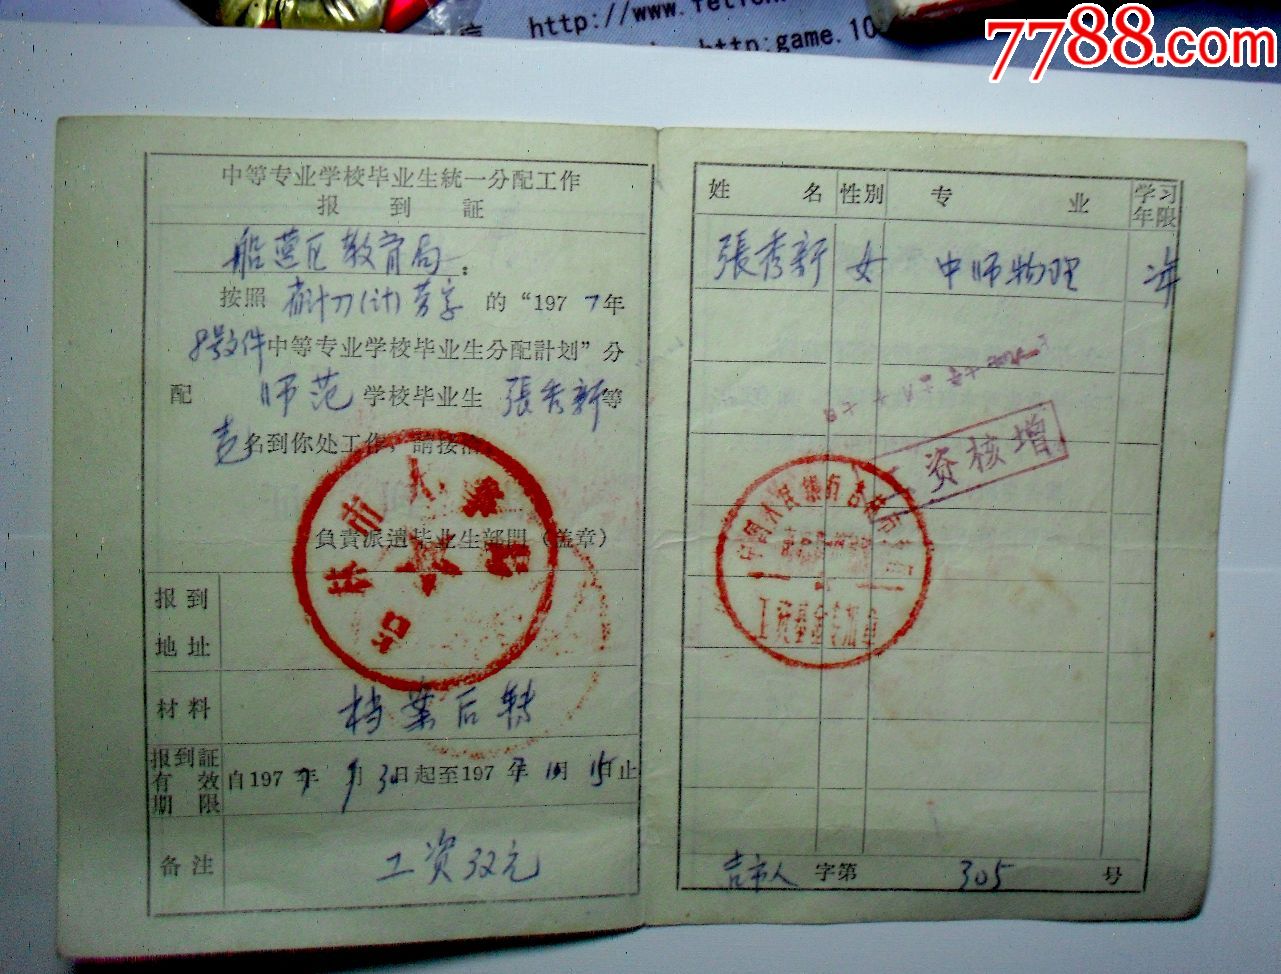 http://www.
http:game.10
7788.com
中等专业学校毕业生統一分配工作
报到証
船营区教育局：
按照 省计刀(计)劳字 的“1977年
8号文件中等专业学校毕业生分配計划”分
配 师范 学校毕业生 張秀新等
壱名到你处工作，請接洽
負責派遣毕业生部門（盖章）
报到
地址
材料 档案后转
报到証
有效
期限
自1977年9月30日起至1977年10月15日止
备注 工资32元
姓名 性别 专业 学习
年限
張秀新 女 中师物理
资核增
工资基金专用章
吉市人 字第 305 号